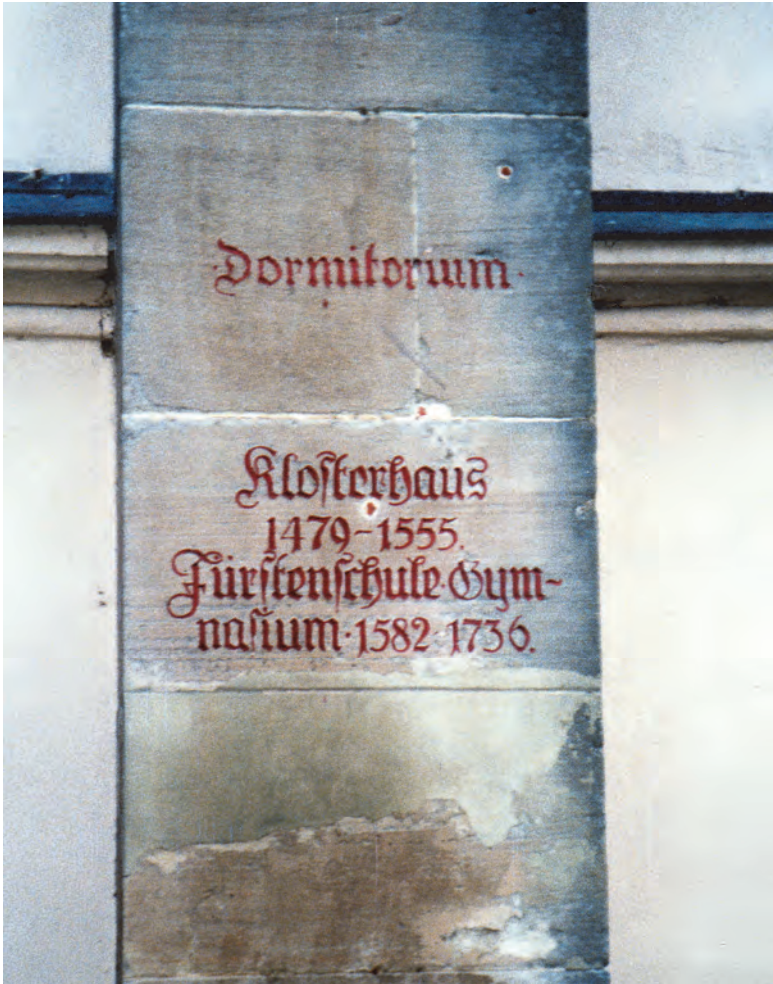 ·Dormitorium·
Kloſterhaus
1479-1555.
Fürſtenſchule·Gym-
naſium·1582·1736.